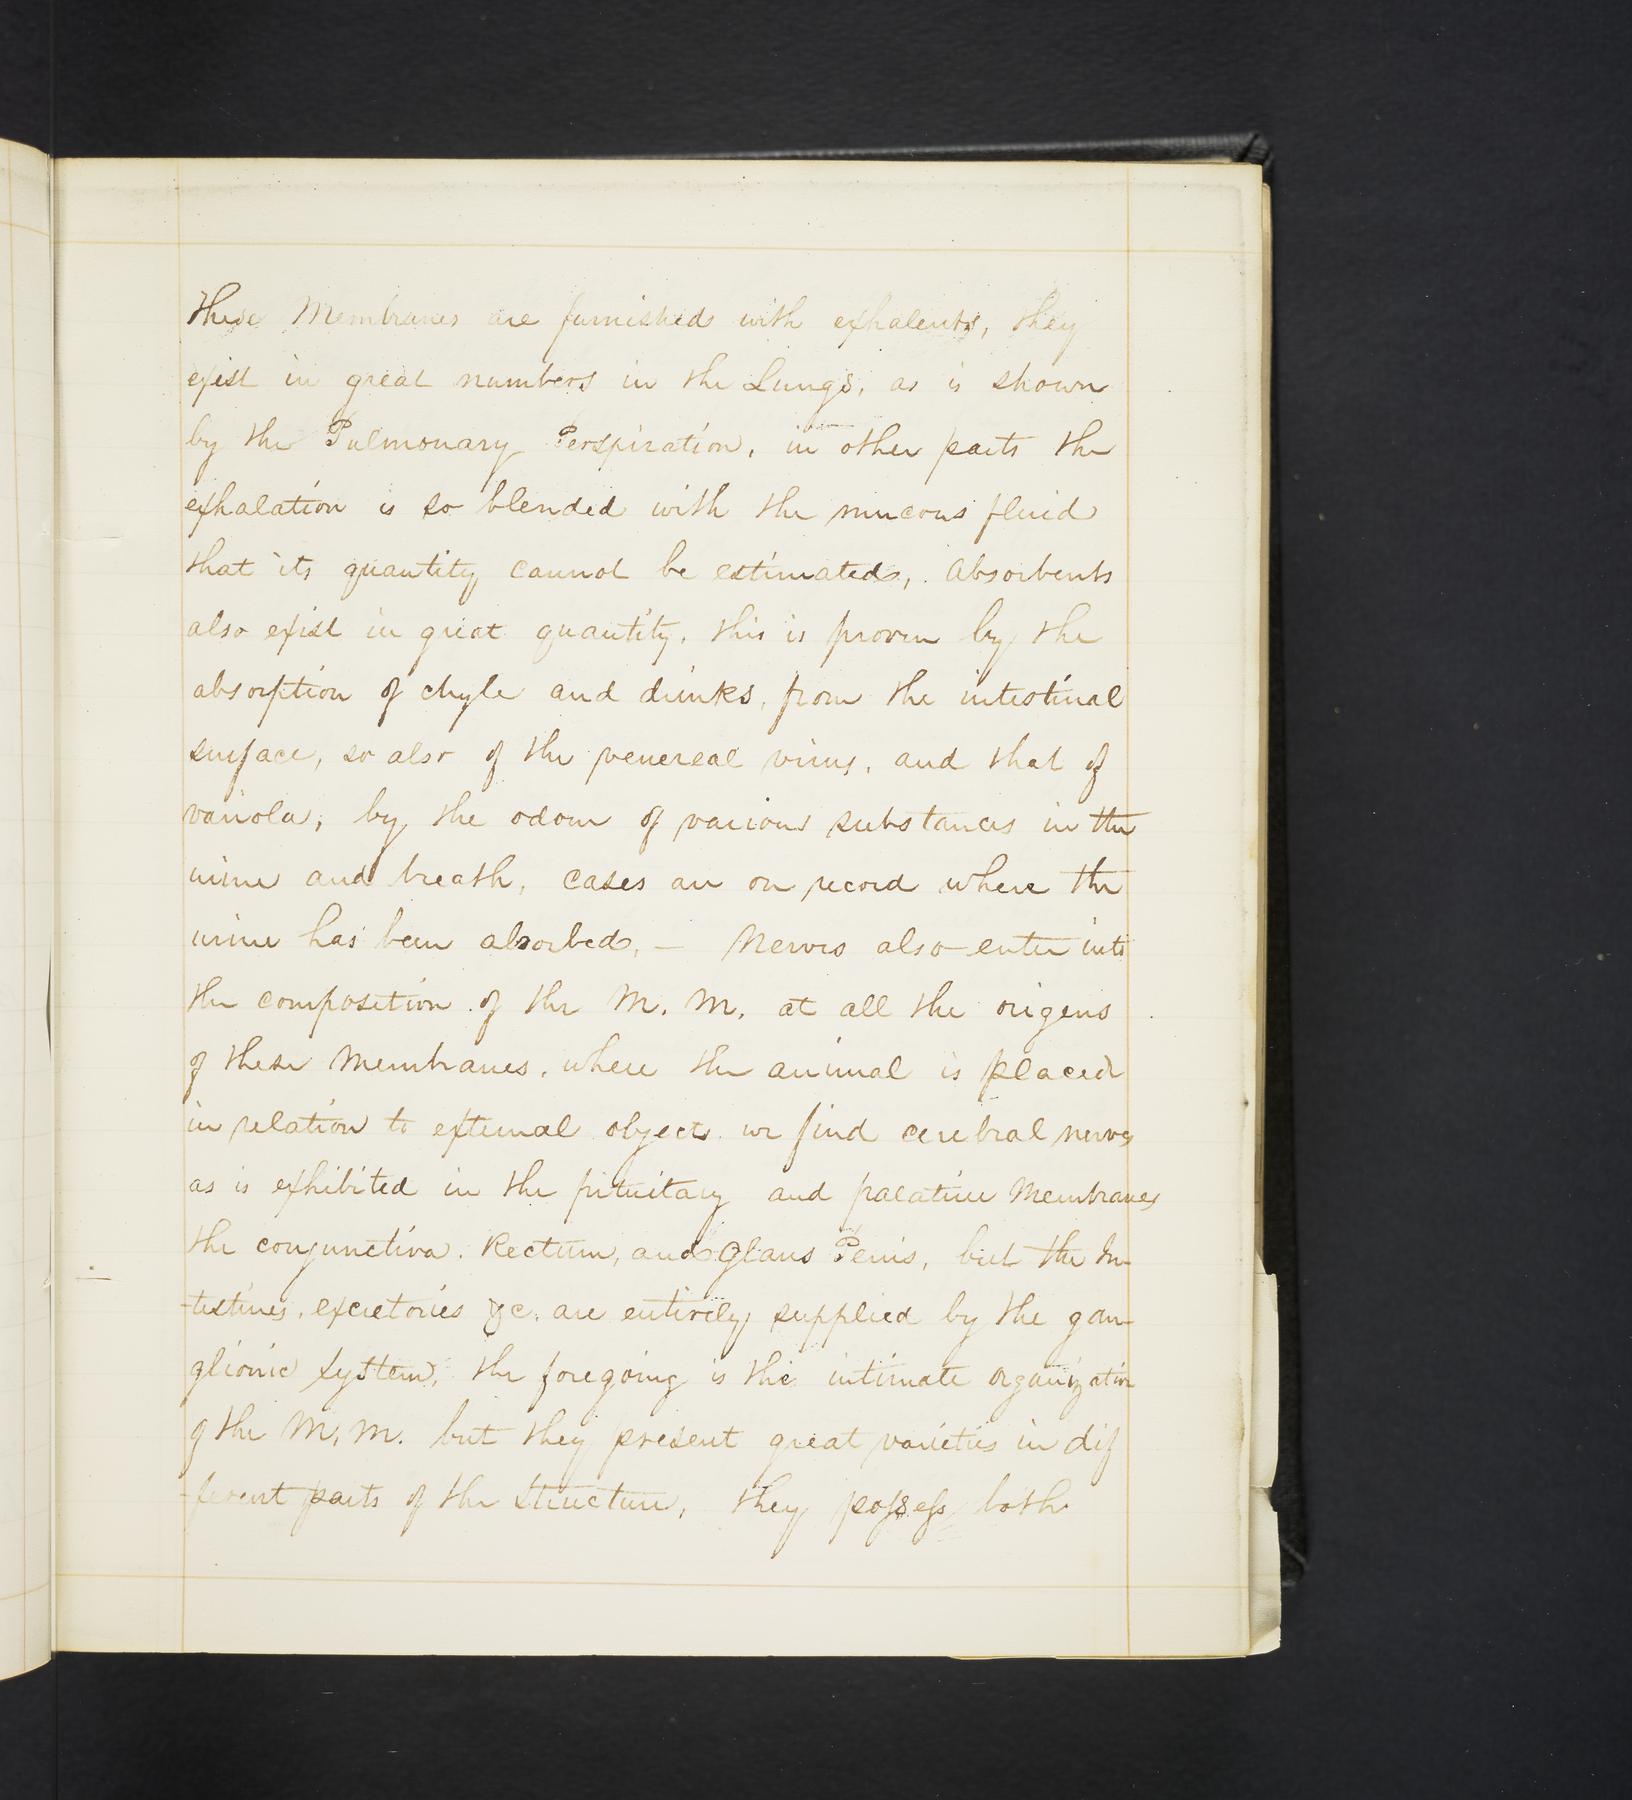 these Membranes are furnished with exhalents, they
exist in great numbers in the Lungs, as is shown
by the Pulmonary Perspiration, in other parts the
exhalation is so blended with the mucous fluid
that its quantity cannot be estimated, Absorbents
also exist in great quantity, this is proven by the
absorption of chyle and drinks, from the intestinal
surface, so also of the venereal virus, and that of
variola, by the odour of various substances in the
urine and breath, cases are on record where the
urine has been absorbed, — Nerves also enter into
the composition of the M. M. at all the origens
of these Membranes, where the animal is placed
in relation to external objects we find cerebral nerves
as is exhibited in the pituitary and palatine Membranes
the conjunctiva. Rectum, and Glans Penis, but the In-
-testines, excretories &c. are entirely supplied by the gan-
glionic system, the foregoing is the intimate organization
of the M. M. but they present great varieties in dif
-ferent parts of the structure, they possess both